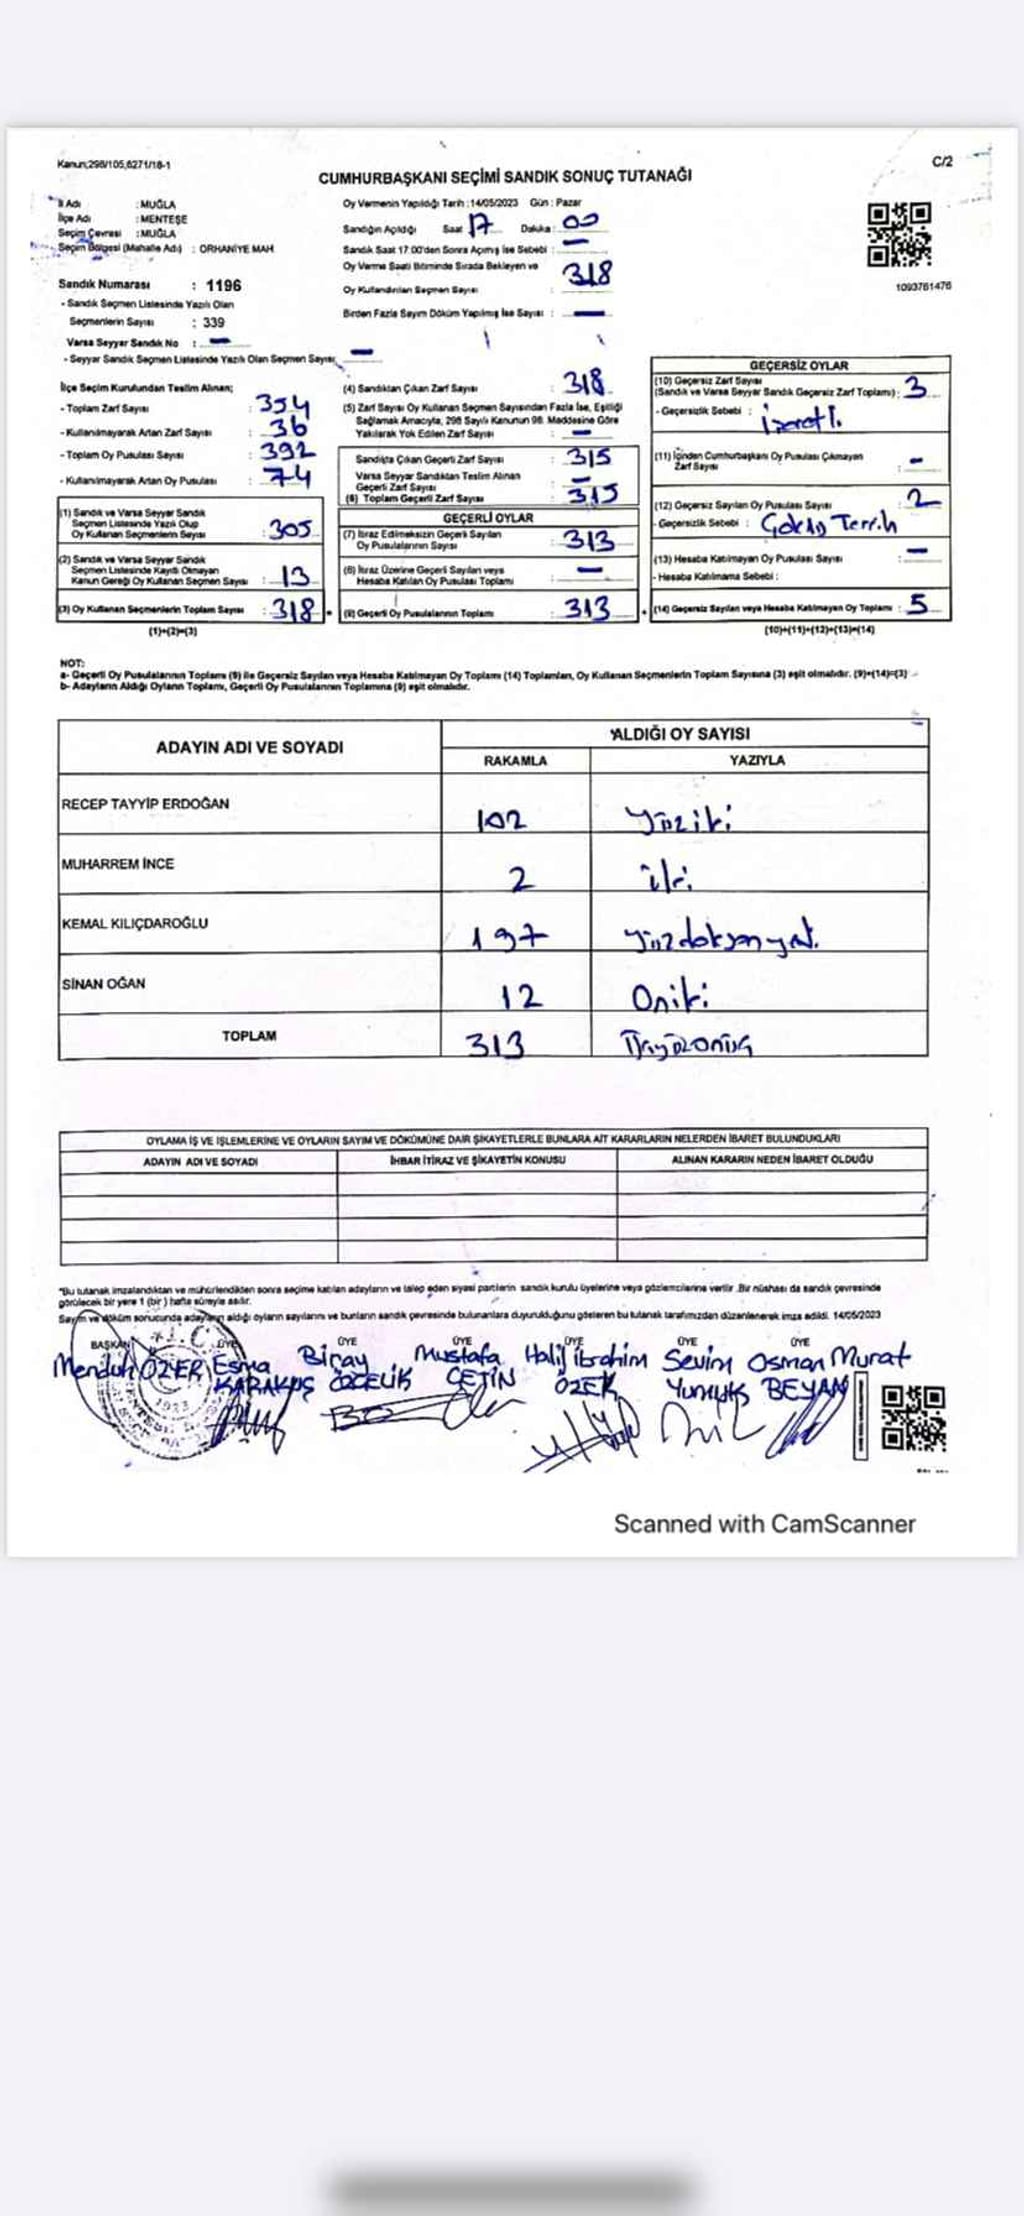 Kanun;298/105,6271/18-1
C/2
CUMHURBAŞKANI SEÇİMİ SANDIK SONUÇ TUTANAĞI
İl Adı : MUĞLA
İlçe Adı : MENTEŞE
Seçim Çevresi : MUĞLA
Seçim Bölgesi (Mahalle Adı) : ORHANİYE MAH
Sandık Numarası : 1196
- Sandık Seçmen Listesinde Yazılı Olan
Seçmenlerin Sayısı : 339
Varsa Seyyar Sandık No : —
- Seyyar Sandık Seçmen Listesinde Yazılı Olan Seçmen Sayısı —
Oy Vermenin Yapıldığı Tarih :14/05/2023 Gün : Pazar
Sandığın Açıldığı Saat 17 Dakika : 00
Sandık Saat 17.00'den Sonra Açımış İse Sebebi : —
Oy Verme Saati Bitiminde Sırada Bekleyen ve
Oy Kullandırılan Seçmen Sayısı : 318
Birden Fazla Sayım Döküm Yapılmış İse Sayısı : —
1093761476
İlçe Seçim Kurulundan Teslim Alınan;
- Toplam Zarf Sayısı : 354
- Kullanılmayarak Artan Zarf Sayısı : 36
- Toplam Oy Pusulası Sayısı : 392
- Kullanılmayarak Artan Oy Pusulası : 74
(1) Sandık ve Varsa Seyyar Sandık
Seçmen Listesinde Yazılı Olup
Oy Kullanan Seçmenlerin Sayısı : 305
(2) Sandık ve Varsa Seyyar Sandık
Seçmen Listesinde Kayıtlı Olmayan
Kanun Gereği Oy Kullanan Seçmen Sayısı : 13
(3) Oy Kullanan Seçmenlerin Toplam Sayısı : 318
(1)+(2)=(3)
(4) Sandıktan Çıkan Zarf Sayısı : 318
(5) Zarf Sayısı Oy Kullanan Seçmen Sayısından Fazla İse, Eşitliği
Sağlamak Amacıyla, 298 Sayılı Kanunun 98. Maddesine Göre
Yakılarak Yok Edilen Zarf Sayısı : —
Sandıkta Çıkan Geçerli Zarf Sayısı : 315
Varsa Seyyar Sandıktan Teslim Alınan
Geçerli Zarf Sayısı : —
(6) Toplam Geçerli Zarf Sayısı : 315
GEÇERLİ OYLAR
(7) İtiraz Edilmeksizin Geçerli Sayılan
Oy Pusulalarının Sayısı : 313
(8) İtiraz Üzerine Geçerli Sayılan veya
Hesaba Katılan Oy Pusulası Toplamı : —
(9) Geçerli Oy Pusulalarının Toplamı : 313
GEÇERSİZ OYLAR
(10) Geçersiz Zarf Sayısı
(Sandık ve Varsa Seyyar Sandık Geçersiz Zarf Toplamı) : 3
- Geçersizlik Sebebi : İşaretli
(11) İçinden Cumhurbaşkanı Oy Pusulası Çıkmayan
Zarf Sayısı : -
(12) Geçersiz Sayılan Oy Pusulası Sayısı : 2
- Geçersizlik Sebebi :
(13) Hesaba Katılmayan Oy Pusulası Sayısı : —
- Hesaba Katılmama Sebebi :
(14) Geçersiz Sayılan veya Hesaba Katılmayan Oy Toplamı : 5
(10)+(11)+(12)+(13)=(14)
NOT:
a- Geçerli Oy Pusulalarının Toplamı (9) ile Geçersiz Sayılan veya Hesaba Katılmayan Oy Toplamı (14) Toplamları, Oy Kullanan Seçmenlerin Toplam Sayısına (3) eşit olmalıdır. (9)+(14)=(3)
b- Adayların Aldığı Oyların Toplamı, Geçerli Oy Pusulalarının Toplamına (9) eşit olmalıdır.
ADAYIN ADI VE SOYADI ALDIĞI OY SAYISI
RAKAMLA YAZIYLA
RECEP TAYYİP ERDOĞAN 102 Yüziki
MUHARREM İNCE 2 iki
KEMAL KILIÇDAROĞLU 197 Yüzdoksanyedi
SİNAN OĞAN 12 Oniki
TOPLAM 313 Üçyüzonüç
OYLAMA İŞ VE İŞLEMLERİNE VE OYLARIN SAYIM VE DÖKÜMÜNE DAİR ŞİKAYETLERLE BUNLARA AİT KARARLARIN NELERDEN İBARET BULUNDUKLARI
ADAYIN ADI VE SOYADI İHBAR İTİRAZ VE ŞİKAYETİN KONUSU ALINAN KARARIN NEDEN İBARET OLDUĞU
"Bu tutanak imzalandıktan ve mühürlendikten sonra seçime katılan adayların ve talep eden siyasi partilerin sandık kurulu üyelerine veya gözlemcilerine verilir .Bir nüshası da sandık çevresinde
görülecek bir yere 1 (bir ) hafta süreyle asılır.
Sayım ve döküm sonucunda adayların aldığı oyların sayılarını ve bunların sandık çevresinde bulunanlara duyurulduğunu gösteren bu tutanak tarafımızdan düzenlenerek imza edildi. 14/05/2023
BAŞKAN ÜYE ÜYE ÜYE ÜYE ÜYE ÜYE
Menduh ÖZER Esma Biray Mustafa Halil İbrahim Sevim Osman Murat
KARAKUŞ ÖZÇELİK ÇETİN ÖZER BEYAN
Scanned with CamScanner